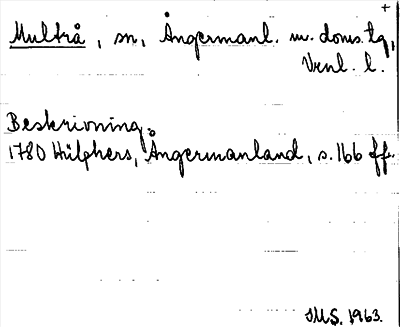 +
Multrå, sn, Ångermanl. m. doms.lg,
Vrnl. l.
Beskrivning.
1780 Hülphers, Ångermanland, s. 166 ff.
JMS. 1963.